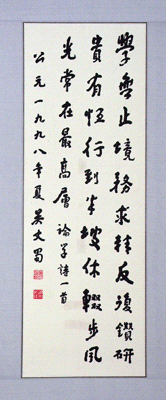 學無止境務求精反復鑽研
貴有恒行到半坡休輟步風
光常在最高層 論學詩一首
公元一九九八年夏吴丈蜀